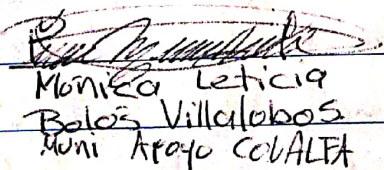 Mónica Leticia
Bolos Villalobos
Muni Apoyo COVALFA